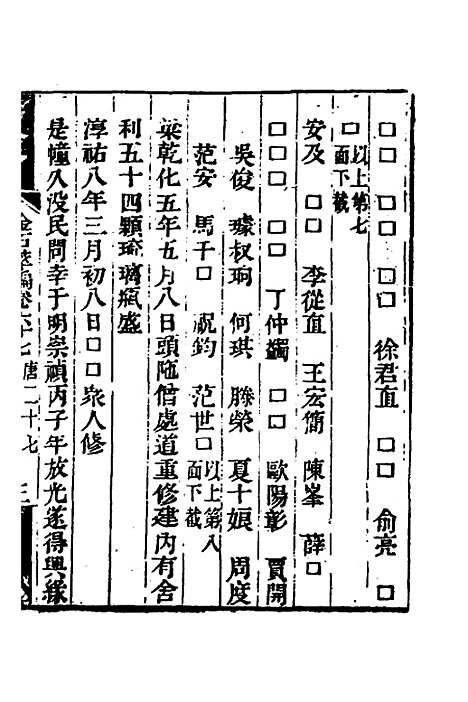 □□　□□　□□　徐君直　□□　俞亮　□
□以上第七面下截
安及　□□　李從直　王宏簡　陳峯　薛□
□□　□□　丁仲蠲　□□　歐陽彰　賈開
吳俊　璩叔珦　何琪　滕榮　夏十娘　周度
范安　馬千□　祝鈞　范世□以上第八面下截
梁乾化五年五月八日頭陁僧處道重修建內有舍
利五十四顆琉璃瓶盛
淳祐八年三月初八日□□眾人修
是幢久沒民間幸于明崇禎丙子年放光遂得興緣
金石萃編卷六十七　唐二十七　三